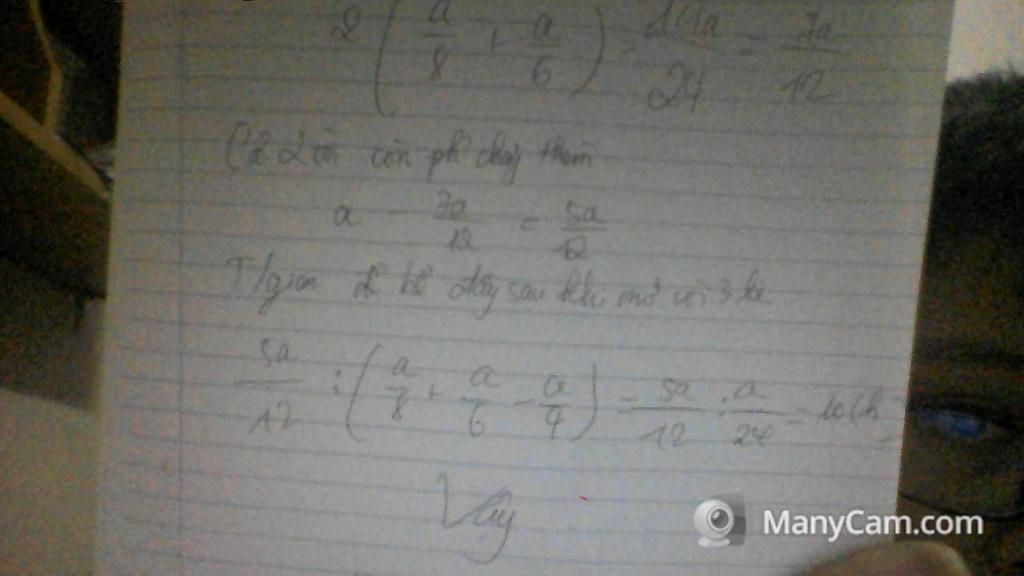 2 ( a/8 + a/6 ) = 14a/24 = 7a/12
Cả 2 còn phải chảy thêm
a - 7a/12 = 5a/12
T/gian để bể đầy sau khi mở vòi 3 là
5a/12 : ( a/8 + a/6 - a/4 ) = 5a/12 : a/24 = 10(h)
Vậy
ManyCam.com